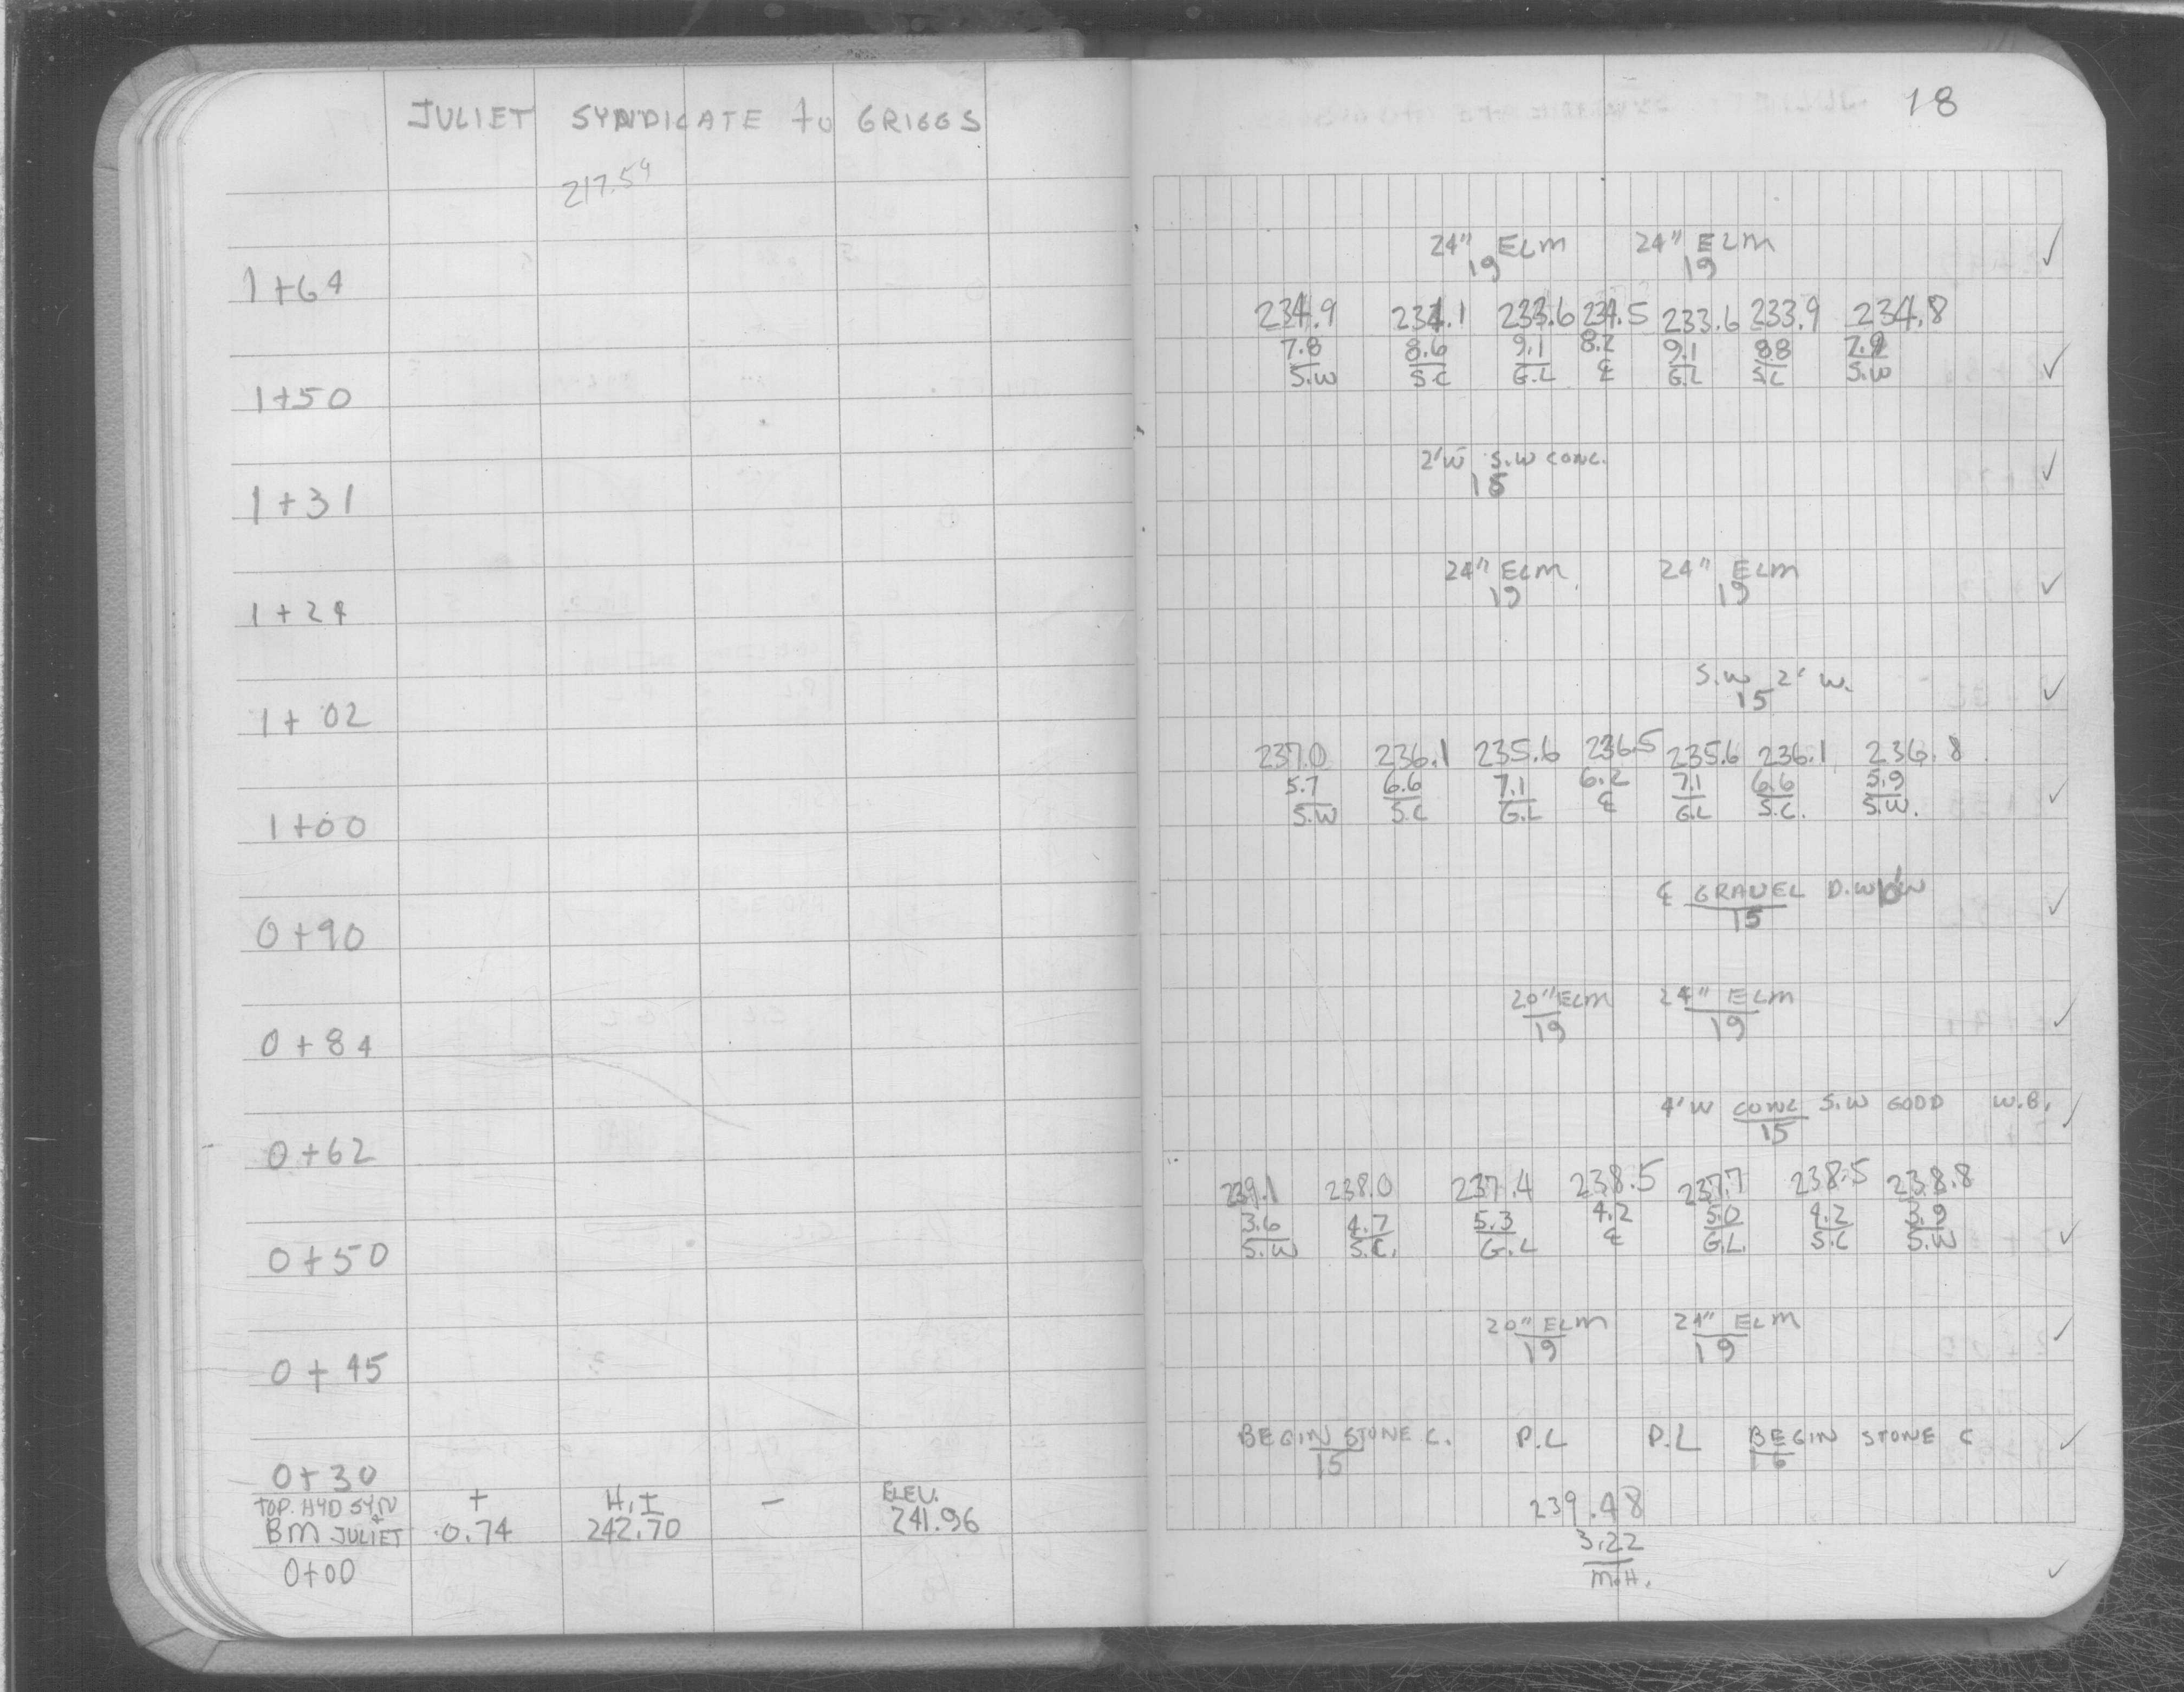 JULIET SYNDICATE to GRIGGS
217.54
1+64
1+50
1+31
1+24
1+02
1+00
0+90
0+84
0+62
0+50
0+45
0+30
TOP. HYD SYN + H.I - ELEV.
BM JULIET 0.74 242.70 241.96
0+00
18
24" ELM 24" ELM ✓
19 19
234.9 234.1 233.6 234.5 233.6 233.9 234.8
7.8 8.6 9.1 8.2 9.1 8.8 7.9
S.W S.C G.L ℄ G.L S.C S.W ✓
2'W S.W CONC. ✓
15
24" ELM 24" ELM ✓
19 19
S.W 2' W. ✓
15
237.0 236.1 235.6 236.5 235.6 236.1 236.8
5.7 6.6 7.1 6.2 7.1 6.6 5.9
S.W S.C G.L ℄ G.L S.C. S.W. ✓
℄ GRAVEL D.W 10'W ✓
15
20" ELM 24" ELM ✓
19 19
4'W CONC S.W GOOD W.B. ✓
15
239.1 238.0 237.4 238.5 237.7 238.5 238.8
3.6 4.7 5.3 4.2 5.0 4.2 3.9
S.W S.C. G.L ℄ G.L. S.C S.W ✓
20" ELM 24" ELM ✓
19 19
BEGIN STONE C. P.L P.L BEGIN STONE C ✓
15 16
239.48
3.22
M.H. ✓